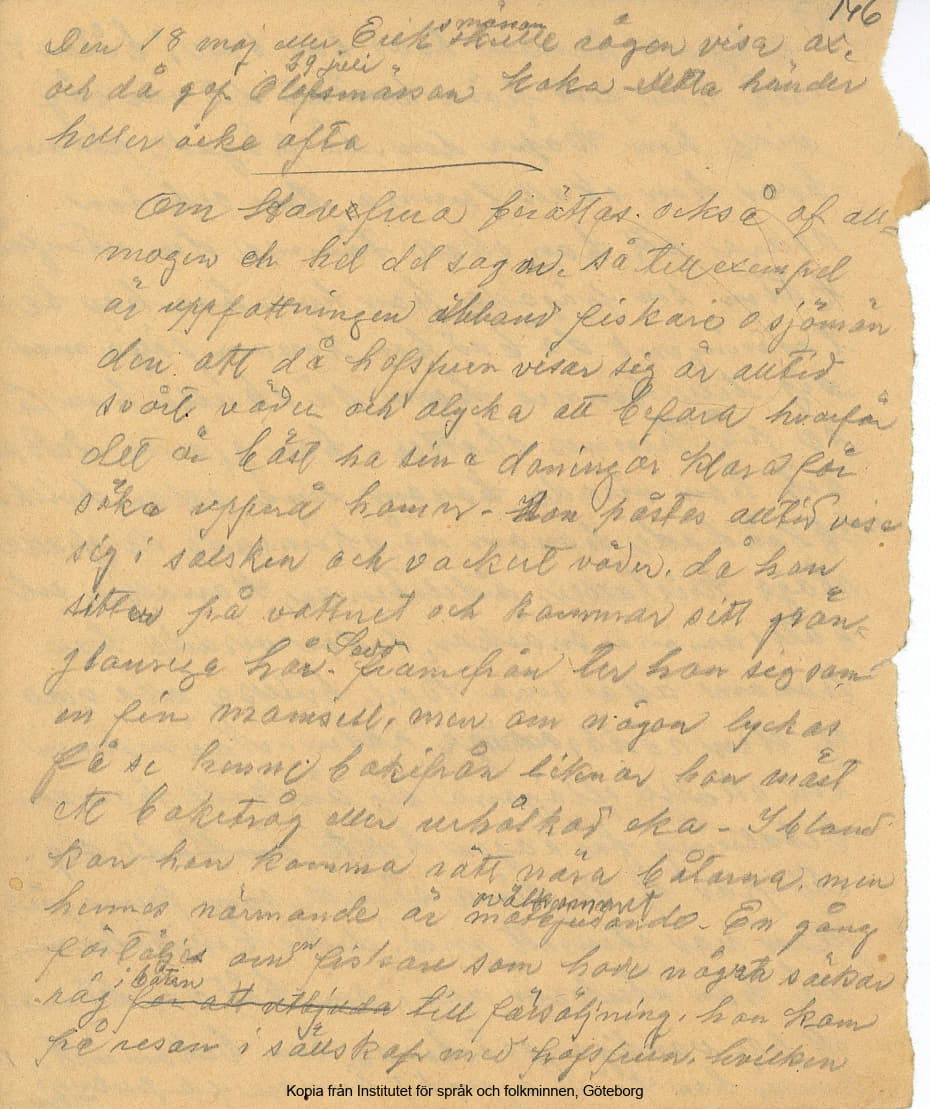 146
Den 18 maj eller Eriksmässan skulle rågen visa ax.
och då gaf Olofsmässan 29 juli kaka - Detta händer
heller icke ofta
Om Hafsfrua berättas också af all-
mogen en hel del sagor. Så till exempel
är uppfattningen ibland fiskare o sjömän
den att då hafsfrun visar sig är alltid
svårt väder och olycka att befara hvarför
det är bäst ha sina doningar klara för
söka uppnå hamn - Hon påstås alltid visa
sig i solsken och vackert väder. då hon
sitter på vattnet och kammar sitt grön-
glänsiga hår. Sedd framifrån ter hon sig som
en fin mamsell, men om någon lyckas
få se henne bakifrån liknar hon mäst
ett baketråg eller urhålkad eka - Ibland
kan hon komma rätt nära båtarna, men
hennes närmande är ovälkommet - En gång
förtäljes om en fiskare som hade några säckar
råg i båten för att utbjuda till försäljning, han kom
på resan i sällskap med hafsfrun, hvilken
Kopia från Institutet för språk och folkminnen, Göteborg